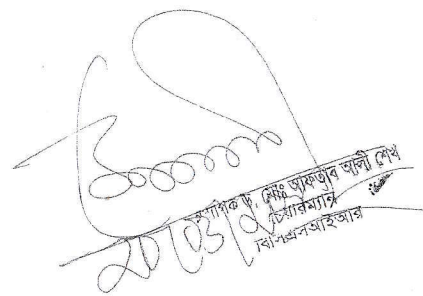 অধ্যাপক ড. মোঃ আফতাব আলী শেখ
চেয়ারম্যান
বিসিএসআইআর